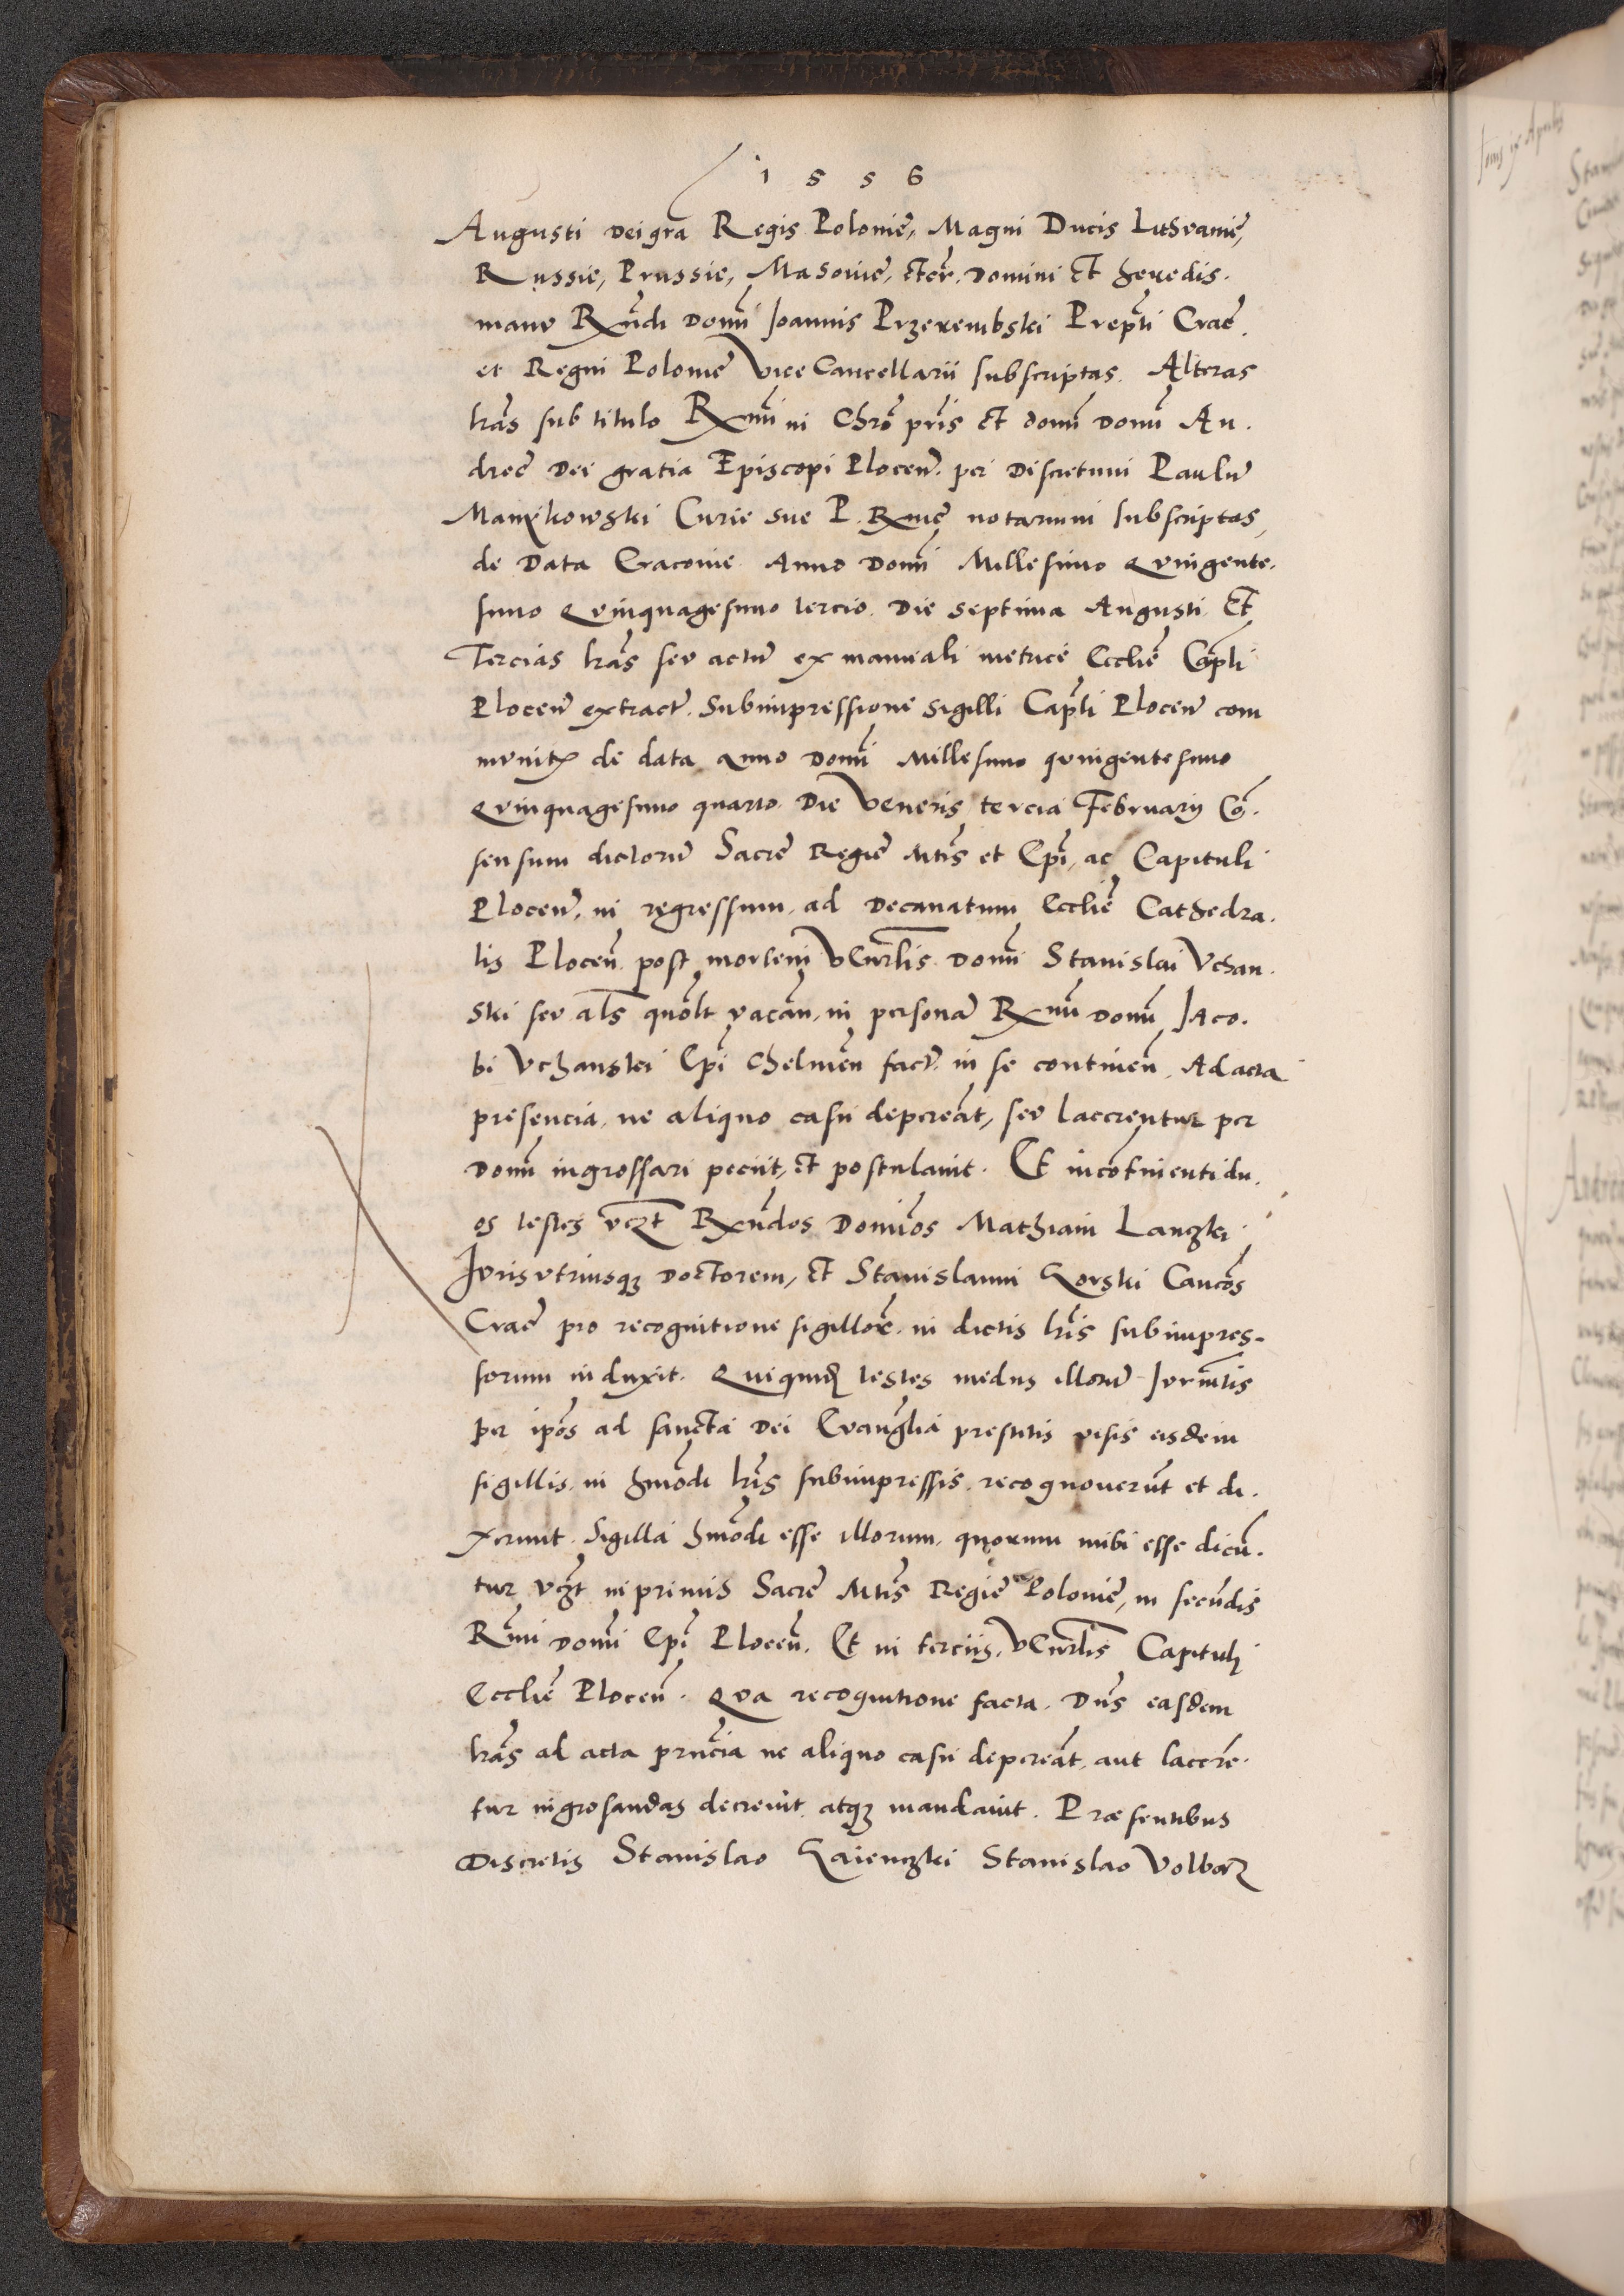 1556
Augusti Dei gr̃a Regis Polonie, Magni Ducis Lithvanie,
Russie, Prussie, Masovie, etc̃r. Domini et heredis.
manv Rx̃ndi Dom̃ Joannis Przerembski Prep̃ti Crac̃.
et Regni Polonie Vice Cancellarii subscriptas. Alteras
l̃ras sub titulo Rxm̃i in Chr̃o pr̃is et dom̃ Dom̃ An.
dree Dei gratia Episcopi Plocen̄. per Discretum Paulū
Manikowski Curie sue P. Rm̃e notarium subscriptas,
de Data Cracovie Anno Dom̃ Millesimo Qvingente.
simo Qvinquagesimo tercio. Die septima Augusti. Et
Tercias l̃ras sev actū ex manuali metrice Eccl̃ie Cap̃li
Plocen̄ extract̃. Subimpressione Sigilli Cap̃ti Plocen̄ com
mvnit̃ de data Anno Dom̃ Millesimo qvingentesimo
Qvinquagesimo quarto. Die Veneris tercia Februarij Cō.
sensum dictorū Sacre Regie Mt̃is et Ep̃i, ac Capituli
Plocen̄. in regressum, ad Decanatum Eccl̃ie Cathedra.
lis Plocen̄. post mortem Ven̄rlis Dom̃ Stanislai Vchan.
ski sev al̃s quom̃lt vacan̄. in personā Rxm̃ Dom̃ Jaco.
bi Vchanski Ep̃i Chelmen̄ fact̃. in se continen̄. Ad acta
presencia, ne aliquo casu depereāt, sev lacerentur per
Dom̃ ingrossari peciit, et postulavit. Et incōtinenti du.
os testes vcz̃t Rx̃ndos Domĩos Mathiam Lanczki
Jvris vtriusq3 Doctorem, et Stanislaum Gorski Cancōs
Crac̃ pro recognitione sigillor̃. in dictis l̃ris subimpres-
sorum induxit. Quiquid̃ testes medus illorū Jvram̃tis
per ip̃os ad sancta Dei Evang̃lia prestitis visis eisdem
sigillis. in hmōdi l̃ris subimpressis. recognoverūt et di.
xerunt. Sigilla hmōdi esse illorum. quorum inibi esse dicū.
tur vcz̃t in primis Sacre Mt̃is Regie Polonie, in secūdis
Rm̃i Dom̃i Ep̃i Plocen̄. Et in terciis. Ven̄rlis Capituli
Eccl̃ie Plocen̄. Qva recognitione facta. Dn̄s easdem
l̃ras ad acta prn̄cia ne aliquo casu depereāt, aut lacerē.
tur ingrosandas decrevit. atq3 mandavit. Præsentibus
Discretis Stanislao Gaienczki Stanislao Volbor̃